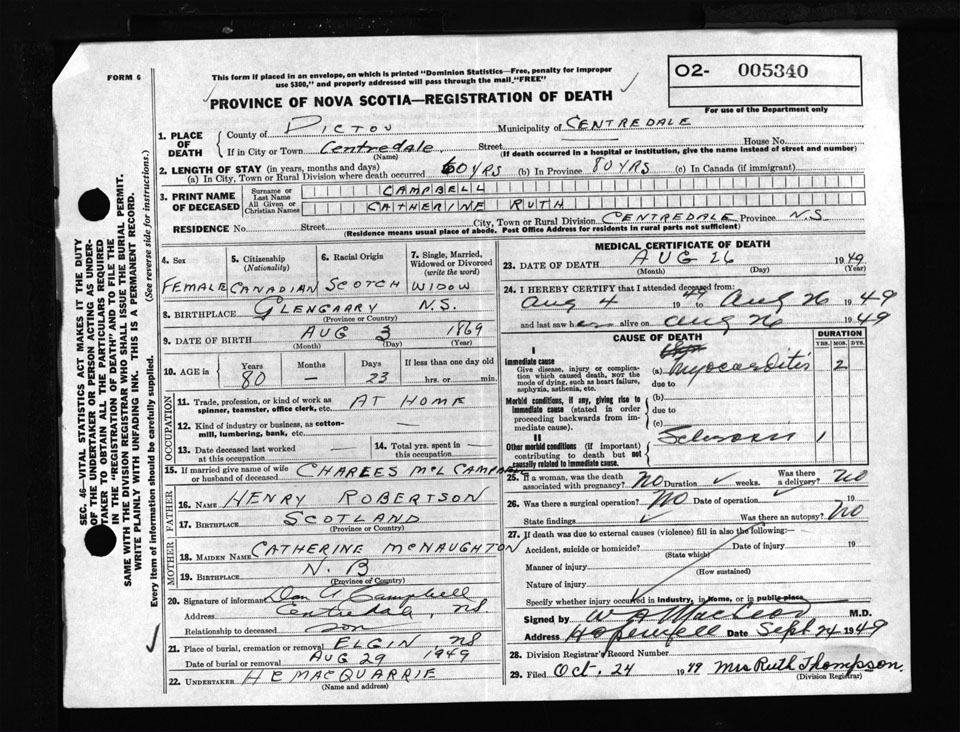 FORM 6
This form if placed in an envelope, on which is printed "Dominion Statistics—Free, penalty for improper
use $300," and properly addressed will pass through the mail "FREE"
O2- 005340
For use of the Department only
PROVINCE OF NOVA SCOTIA—REGISTRATION OF DEATH
1. PLACE OF DEATH
County of PICTOU Municipality of CENTREDALE
If in City or Town Centredale Street House No.
(Name) (If death occurred in a hospital or institution, give the name instead of street and number)
2. LENGTH OF STAY (in years, months and days)
(a) In City, Town or Rural Division where death occurred 60 YRS (b) In Province 80 YRS (c) In Canada (if immigrant)
3. PRINT NAME OF DECEASED
Surname or Last Name CAMPBELL
All Given or Christian Names CATHERINE RUTH
RESIDENCE No. Street City, Town or Rural Division CENTREDALE Province N.S.
(Residence means usual place of abode. Post Office Address for residents in rural parts not sufficient)
4. Sex 5. Citizenship (Nationality) 6. Racial Origin 7. Single, Married, Widowed or Divorced (write the word)
FEMALE CANADIAN SCOTCH WIDOW
8. BIRTHPLACE GLENGARRY N.S.
(Province or Country)
9. DATE OF BIRTH AUG 3 1869
(Month) (Day) (Year)
10. AGE in Years Months Days If less than one day old
80 — 23 hrs. or min.
OCCUPATION
11. Trade, profession, or kind of work as
spinner, teamster, office clerk, etc. AT HOME
12. Kind of industry or business, as cotton-
mill, lumbering, bank, etc. —
13. Date deceased last worked at this occupation — 14. Total yrs. spent in this occupation —
15. If married give name of wife
or husband of deceased CHARLES McL CAMPBELL
FATHER
16. NAME HENRY ROBERTSON
17. BIRTHPLACE SCOTLAND
(Province or Country)
MOTHER
18. MAIDEN NAME CATHERINE McNAUGHTON
19. BIRTHPLACE N. B
(Province or Country)
20. Signature of informant Dan A Campbell
Address Centredale, NS
Relationship to deceased son
21. Place of burial, cremation or removal ELGIN NS
Date of burial or removal AUG 29 1949
22. UNDERTAKER H C MACQUARRIE
(Name and address)
MEDICAL CERTIFICATE OF DEATH
23. DATE OF DEATH AUG 26 1949
(Month) (Day) (Year)
24. I HEREBY CERTIFY that I attended deceased from:
Aug 4 1949 to Aug 26 1949
and last saw her alive on Aug 26 1949
CAUSE OF DEATH DURATION
YRS. MOS. DYS.
I
Immediate cause (a) Myocarditis 2
Give disease, injury or complica-
tion which caused death, NOT the
mode of dying, such as heart failure,
asphyxia, asthenia, etc.
due to
Morbid conditions, if any, giving rise to
immediate cause (stated in order
proceeding backwards from im-
mediate cause).
(b)
due to
(c)
II
Other morbid conditions (if important)
contributing to death but not
causally related to immediate cause.
Sclerosis 1
25. If a woman, was the death
associated with pregnancy? NO Duration weeks. Was there a delivery? NO
26. Was there a surgical operation? NO Date of operation 19
State findings Was there an autopsy? NO
27. If death was due to external causes (violence) fill in also the following:—
Accident, suicide or homicide? Date of injury 19
(State which)
Manner of injury
(How sustained)
Nature of injury
Specify whether injury occurred in Industry, in Home, or in public place
Signed by W A MacLeod M.D.
Address Hopewell Date Sept 24 1949
28. Division Registrar's Record Number
29. Filed Oct. 24 1949 Mrs Ruth Thompson.
(Division Registrar)
SEC. 46—VITAL STATISTICS ACT MAKES IT THE DUTY
OF THE UNDERTAKER OR PERSON ACTING AS UNDER-
TAKER TO OBTAIN ALL THE PARTICULARS REQUIRED
IN THE "REGISTRATION OF DEATH" AND TO FILE THE
SAME WITH THE DIVISION REGISTRAR WHO SHALL ISSUE THE BURIAL PERMIT.
WRITE PLAINLY WITH UNFADING INK. THIS IS A PERMANENT RECORD.
Every item of information should be carefully supplied. (See reverse side for instructions.)